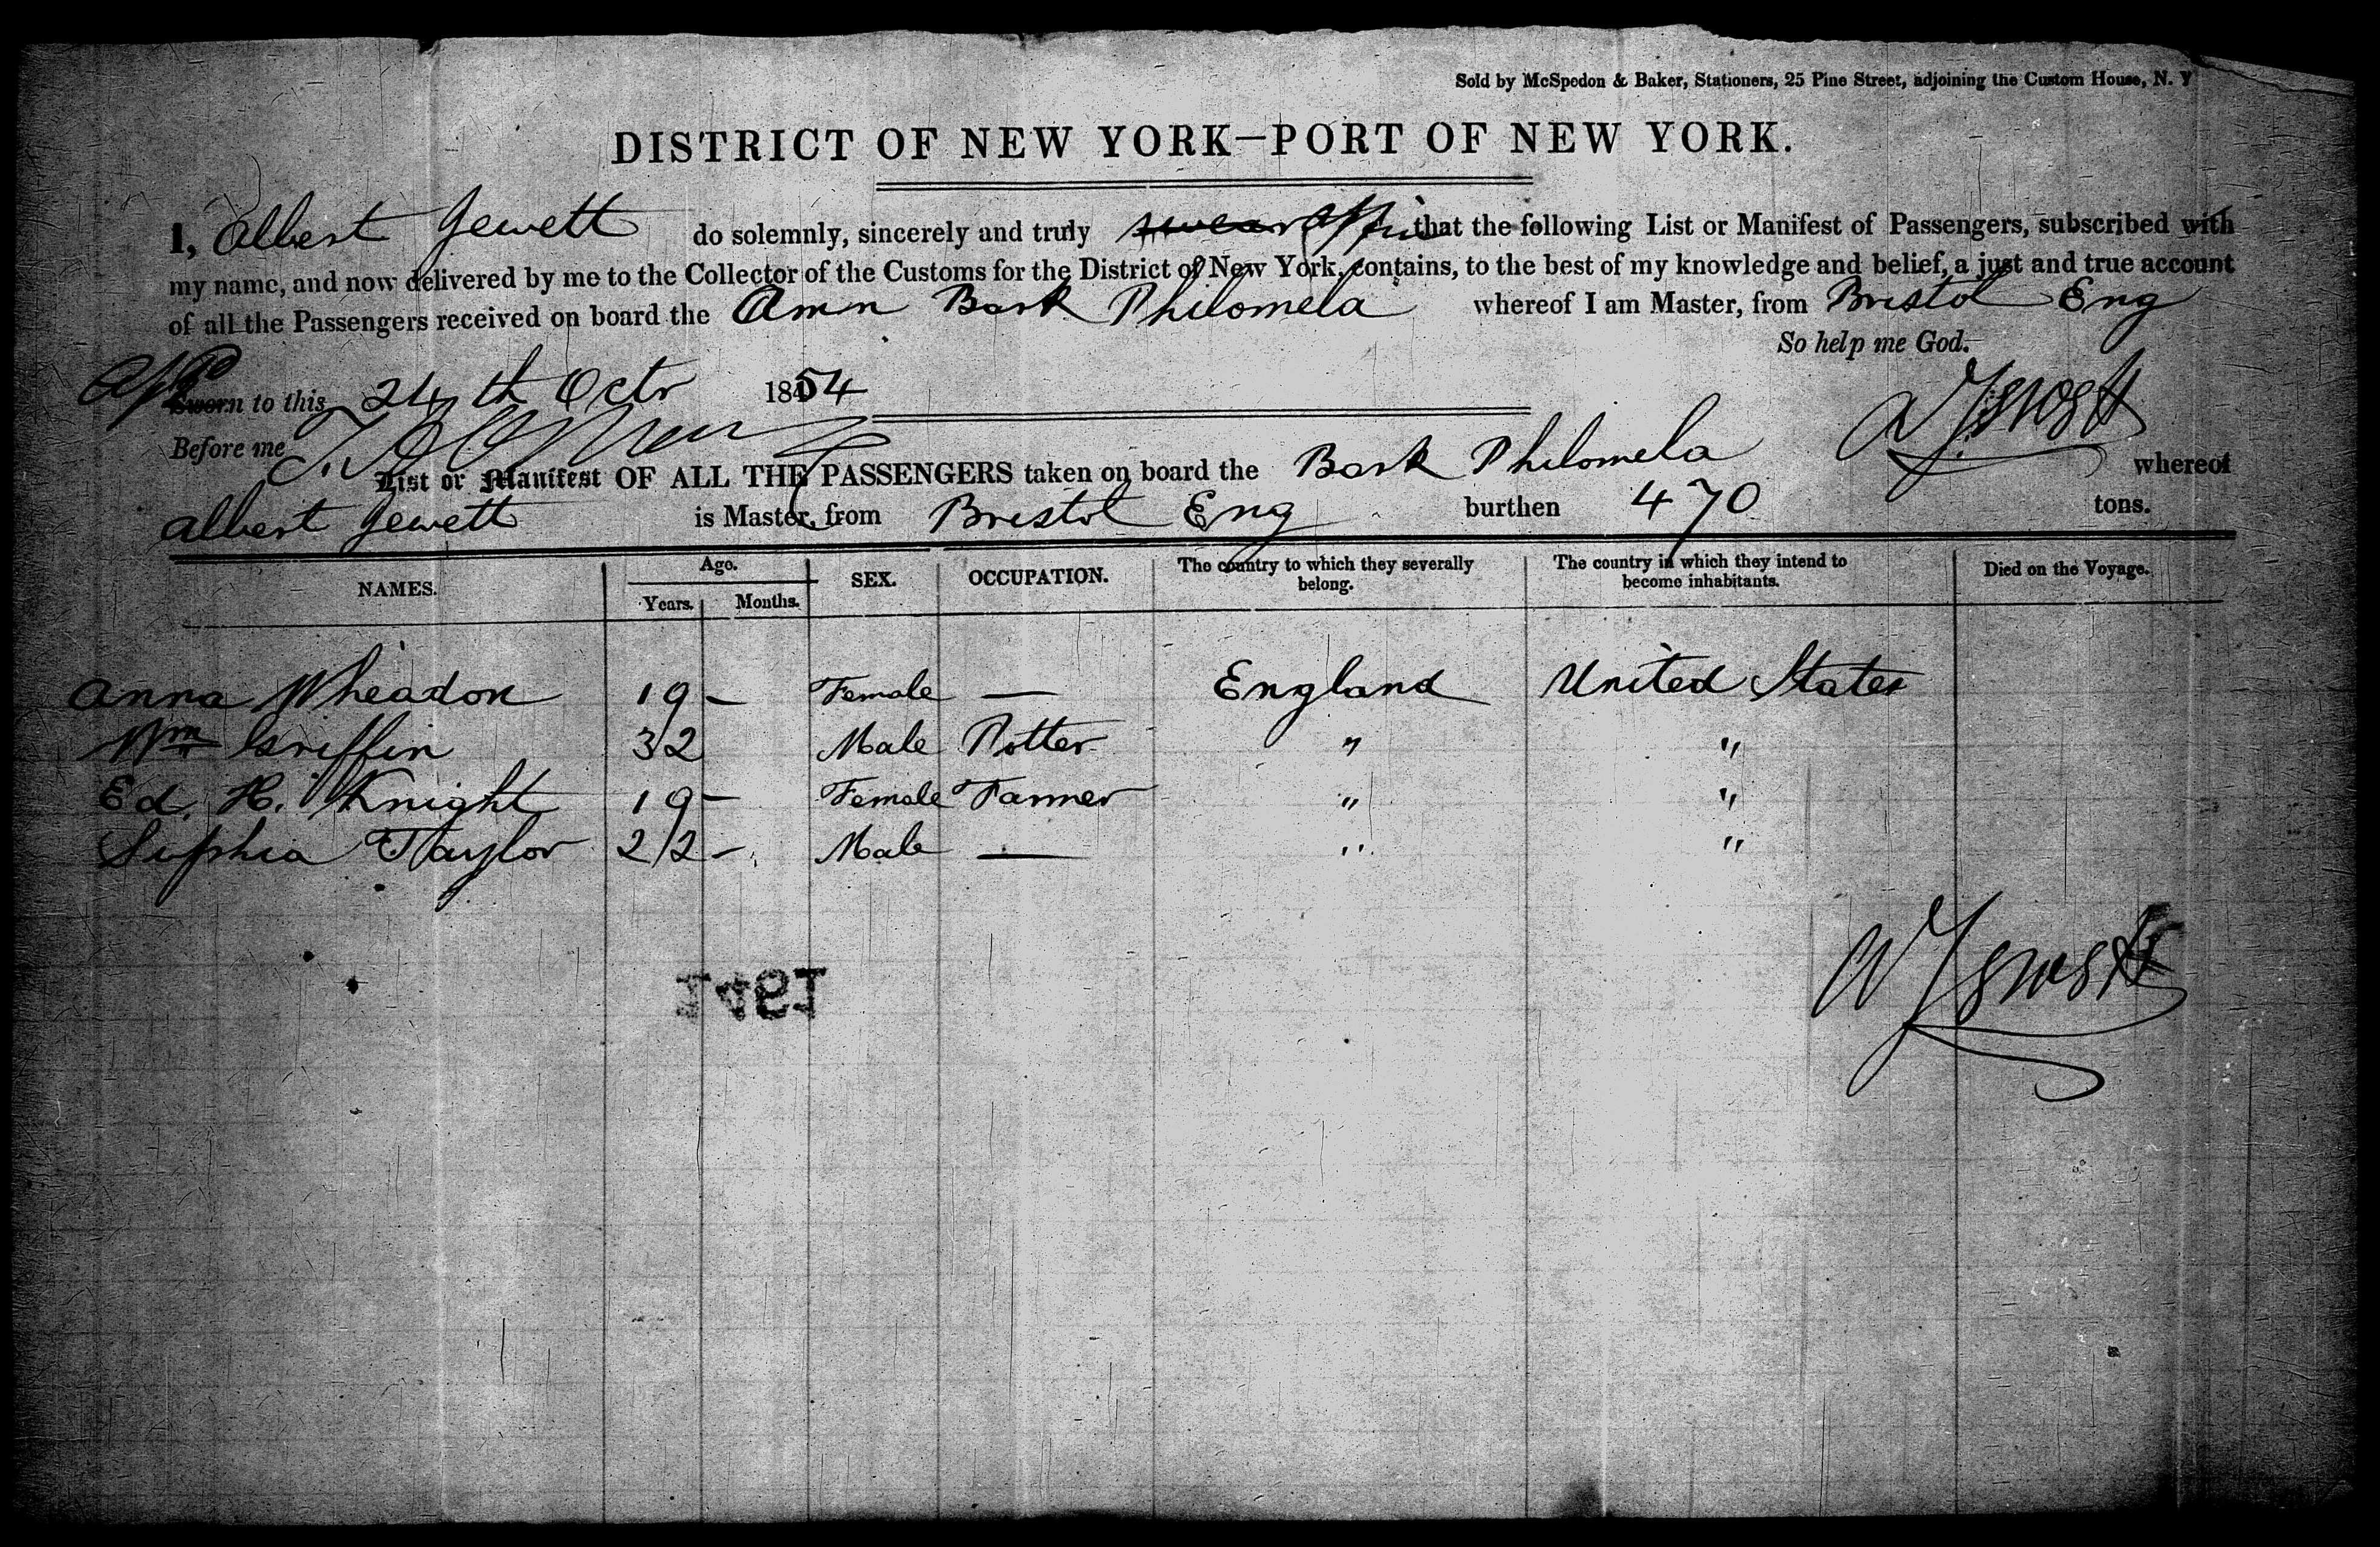 Sold by McSpedon & Baker, Stationers, 25 Pine Street, adjoining the Custom House, N. Y
DISTRICT OF NEW YORK—PORT OF NEW YORK.
I, Albert Jewett do solemnly, sincerely and truly swear affirm that the following List or Manifest of Passengers, subscribed with
my name, and now delivered by me to the Collector of the Customs for the District of New York, contains, to the best of my knowledge and belief, a just and true account
of all the Passengers received on board the Amn Bark Philomela whereof I am Master, from Bristol Eng
So help me God.
Sworn to this 24th Octr 1854
Before me
List or Manifest OF ALL THE PASSENGERS taken on board the Bark Philomela whereof
Albert Jewett is Master, from Bristol Eng burthen 470 tons.
NAMES. Age. Years. Months. SEX. OCCUPATION. The country to which they severally belong. The country in which they intend to become inhabitants. Died on the Voyage.
Anna Wheadon 19 — Female — England United States
Wm Griffin 32 Male Potter " "
Ed. H. Knight 19 — Female Farmer " "
Sophia Taylor 22 — Male — " "